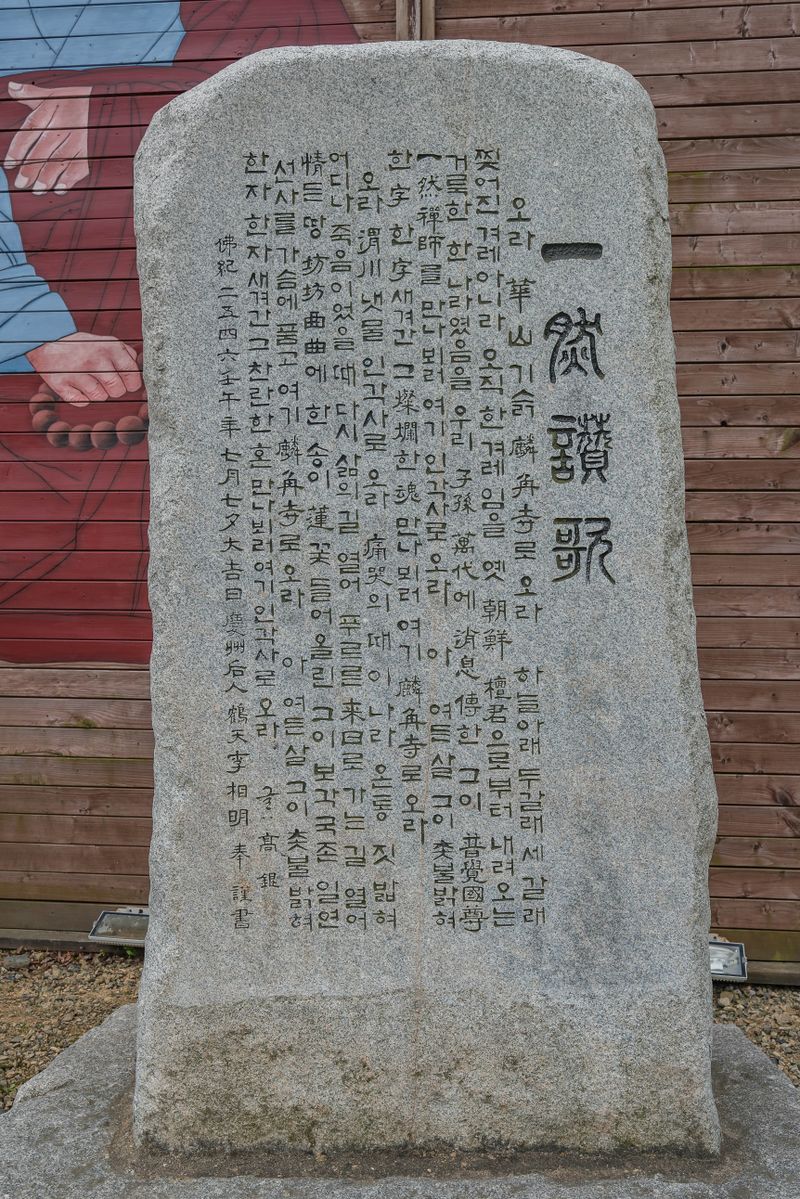 一然讚歌
오라 華山 기슭 麟角寺로 오라 하늘아래 두갈래 세갈래
찢어진 겨레 아니라 오직 한 겨레임을 옛 朝鮮 檀君으로부터 내려오는
거룩한 한 나라였음을 우리 子孫 萬代에 消息 傳한 그이 普覺國尊
一然禪師를 만나뵈러 여기 인각사로 오라 아 여든 살 그이 촛불 밝혀
한 字 한 字 새겨간 그 燦爛한 魂 만나뵈러 여기 麟角寺로 오라
오라 渭川 냇물 인각사로 오라 痛哭의 때 이 나라 온통 짓밟혀
어디나 죽음이었을 때 다시 삶의 길 열어 푸르른 來日로 가는 길 열어
情든 땅 坊坊曲曲에 한 송이 蓮꽃 들어올린 그이 보각국존 일연
선사를 가슴에 품고 여기 麟角寺로 오라 아 여든 살 그이 촛불 밝혀
한자 한자 새겨간 그 찬란한 혼 만나뵈러 여기 인각사로 오라 글 高銀
佛紀 二五四六 壬午年 七月七夕 大吉日 慶州后人 鶴天 李相明 奉謹書